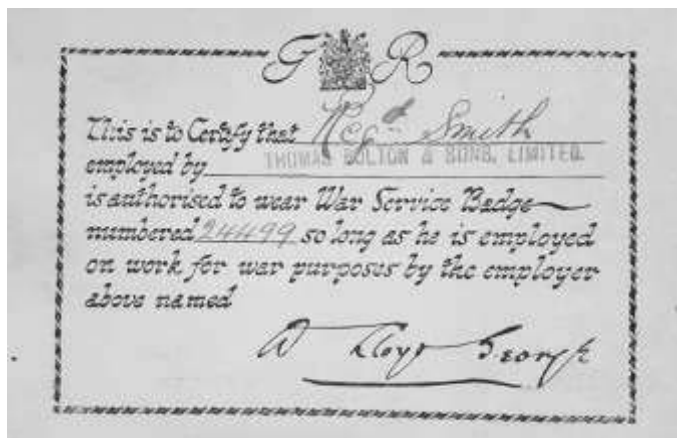 G R
This is to Certify that Regd Smith
employed by THOMAS BOLTON & SONS, LIMITED.
is authorised to wear War Service Badge
numbered 24499 so long as he is employed
on work for war purposes by the employer
above named
D Lloyd George